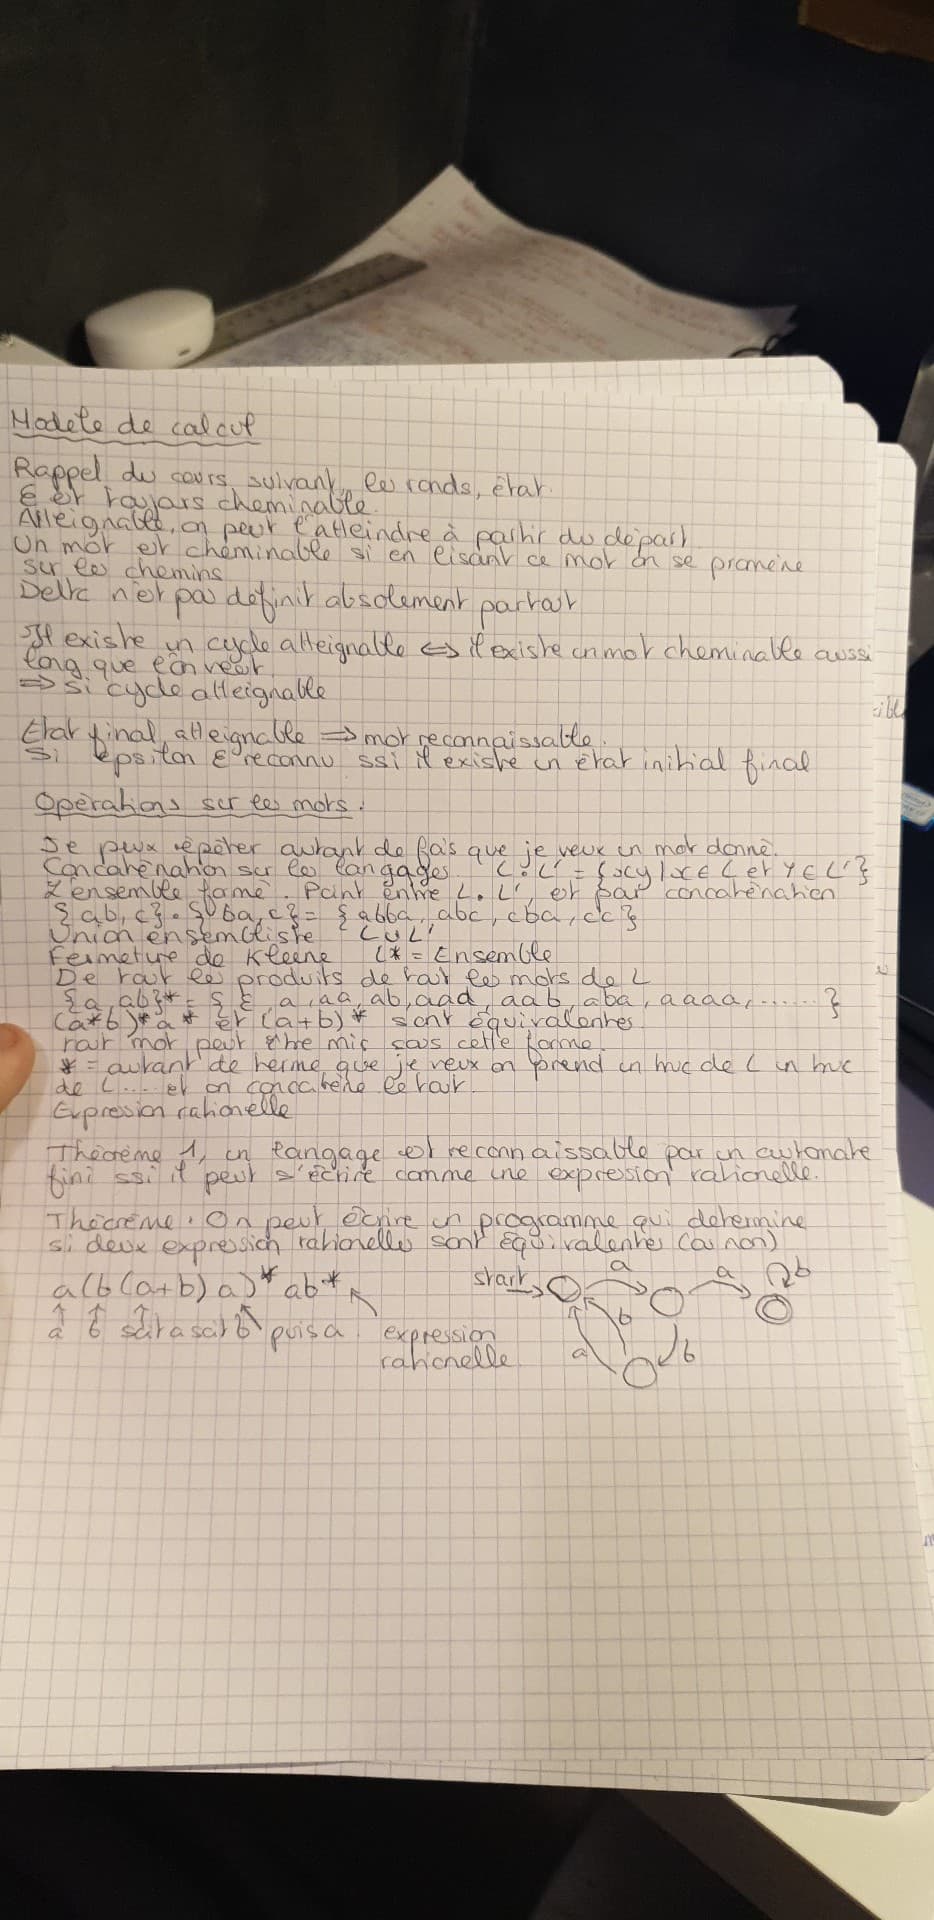 Modele de calcul
Rappel du cours suivant, les ronds, état.
ε est toujours cheminable.
Atteignable, on peut l'atteindre à partir du départ
Un mot est cheminable si en lisant ce mot on se promène
sur les chemins
Delta n'est pas définit absolement partout
Il existe un cycle atteignable <=> il existe un mot cheminable aussi
long que l'on veut
=> si cycle atteignable
Etat final atteignable => mot reconnaissable.
Si epsilon ε reconnu ssi il existe un état initial final
Opérations sur les mots :
Je peux répéter autant de fois que je veux un mot donné.
Concaténation sur les langages. L.L' = {xy | x ∈ L et Y ∈ L'}
L'ensemble formé. Point entre L.L' est par concaténation
{ab, c}.{ba, c} = {abba, abc, cba, cc}
Union ensembliste L∪L'
Fermeture de Kleene L* = Ensemble
De tout les produits de tout les mots de L
{a, ab}* = { ε, a, aa, ab, aad, aab, aba, aaaa, ...... }
(a*b)*a* et (a+b)* sont équivalentes
tout mot peut être mis sous cette forme.
* = autant de terme que je veux on prend un truc de L un truc
de L.... et on concatène le tout.
Expresion rationelle
Théorème 1, un langage est reconnaissable par un automate
fini ssi il peut s'écrire comme une expression rationelle.
Théorème. On peut écrire un programme qui determine
si deux expression rationelles sont équivalentes (ou non)
a(b(a+b)a)*ab*
↑ ↑ ↑
a b soit a soit b puis a
expression
rationelle
start a a b
b
a b